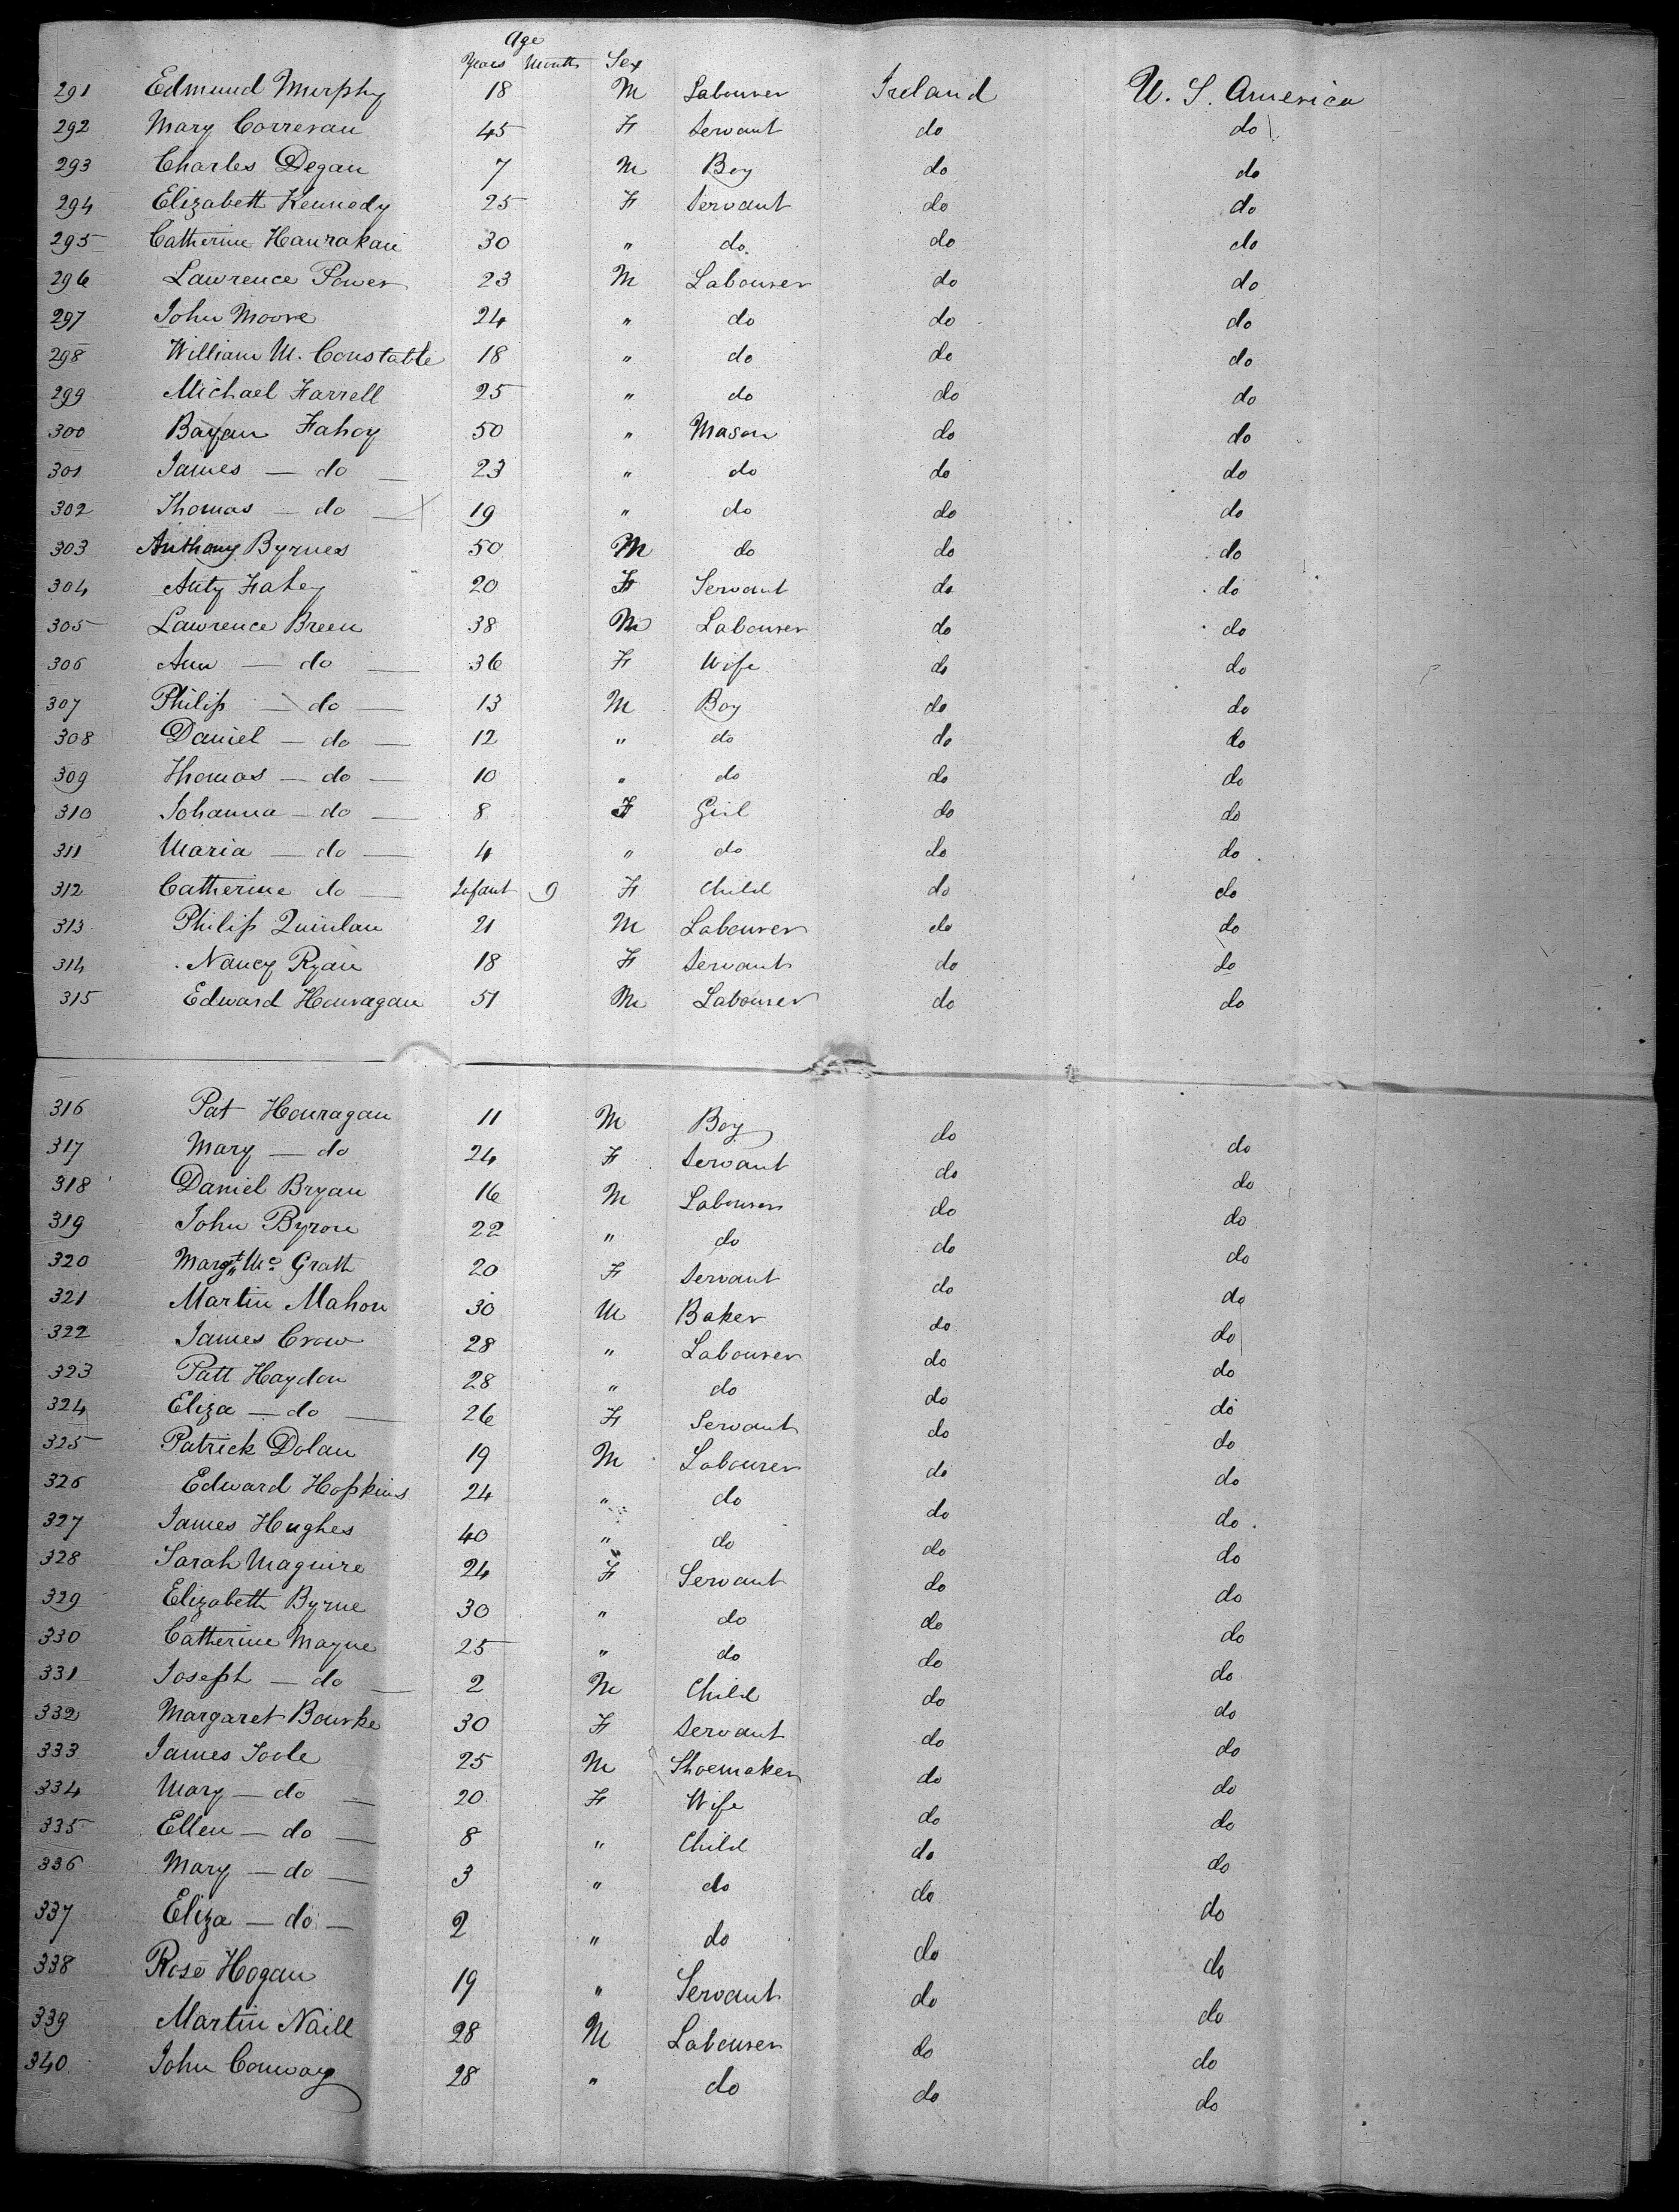 Age
Years Months Sex
291 Edmund Murphy 18 M Labourer Ireland U. S. America
292 Mary Correvan 45 F Servant do do
293 Charles Degan 7 M Boy do do
294 Elizabeth Kennedy 25 F Servant do do
295 Catherine Hanrakan 30 " do do do
296 Lawrence Power 23 M Labourer do do
297 John Moore 24 " do do do
298 William M. Constable 18 " do do do
299 Michael Farrell 25 " do do do
300 Bayan Fahey 50 " Mason do do
301 James — do — 23 " do do do
302 Thomas — do — 19 " do do do
303 Anthony Byrnes 50 M do do do
304 Anty Fahey 20 F Servant do do
305 Lawrence Breen 38 M Labourer do do
306 Ann — do — 36 F Wife do do
307 Philip — do — 13 M Boy do do
308 Daniel — do — 12 " do do do
309 Thomas — do — 10 " do do do
310 Johanna — do — 8 F Girl do do
311 Maria — do — 4 " do do do
312 Catherine do — Infant 9 F Child do do
313 Philip Quinlan 21 M Labourer do do
314 Nancy Ryan 18 F Servant do do
315 Edward Houragan 51 M Labourer do do
316 Pat Houragan 11 M Boy do do
317 Mary — do 24 F Servant do do
318 Daniel Bryan 16 M Labourer do do
319 John Byron 22 " do do do
320 Margt Mc Grath 20 F Servant do do
321 Martin Mahon 30 M Baker do do
322 James Crow 28 " Labourer do do
323 Patt Haydon 28 " do do do
324 Eliza — do — 26 F Servant do do
325 Patrick Dolan 19 M Labourer do do
326 Edward Hopkins 24 " do do do
327 James Hughes 40 " do do do
328 Sarah Maguire 24 F Servant do do
329 Elizabeth Byrne 30 " do do do
330 Catherine Mayne 25 " do do do
331 Joseph — do — 2 M Child do do
332 Margaret Bourke 30 F Servant do do
333 James Toole 25 M Shoemaker do do
334 Mary — do — 20 F Wife do do
335 Ellen — do — 8 " Child do do
336 Mary — do — 3 " do do do
337 Eliza — do — 2 " do do do
338 Rose Hogan 19 " Servant do do
339 Martin Naill 28 M Labourer do do
340 John Conway 28 " do do do